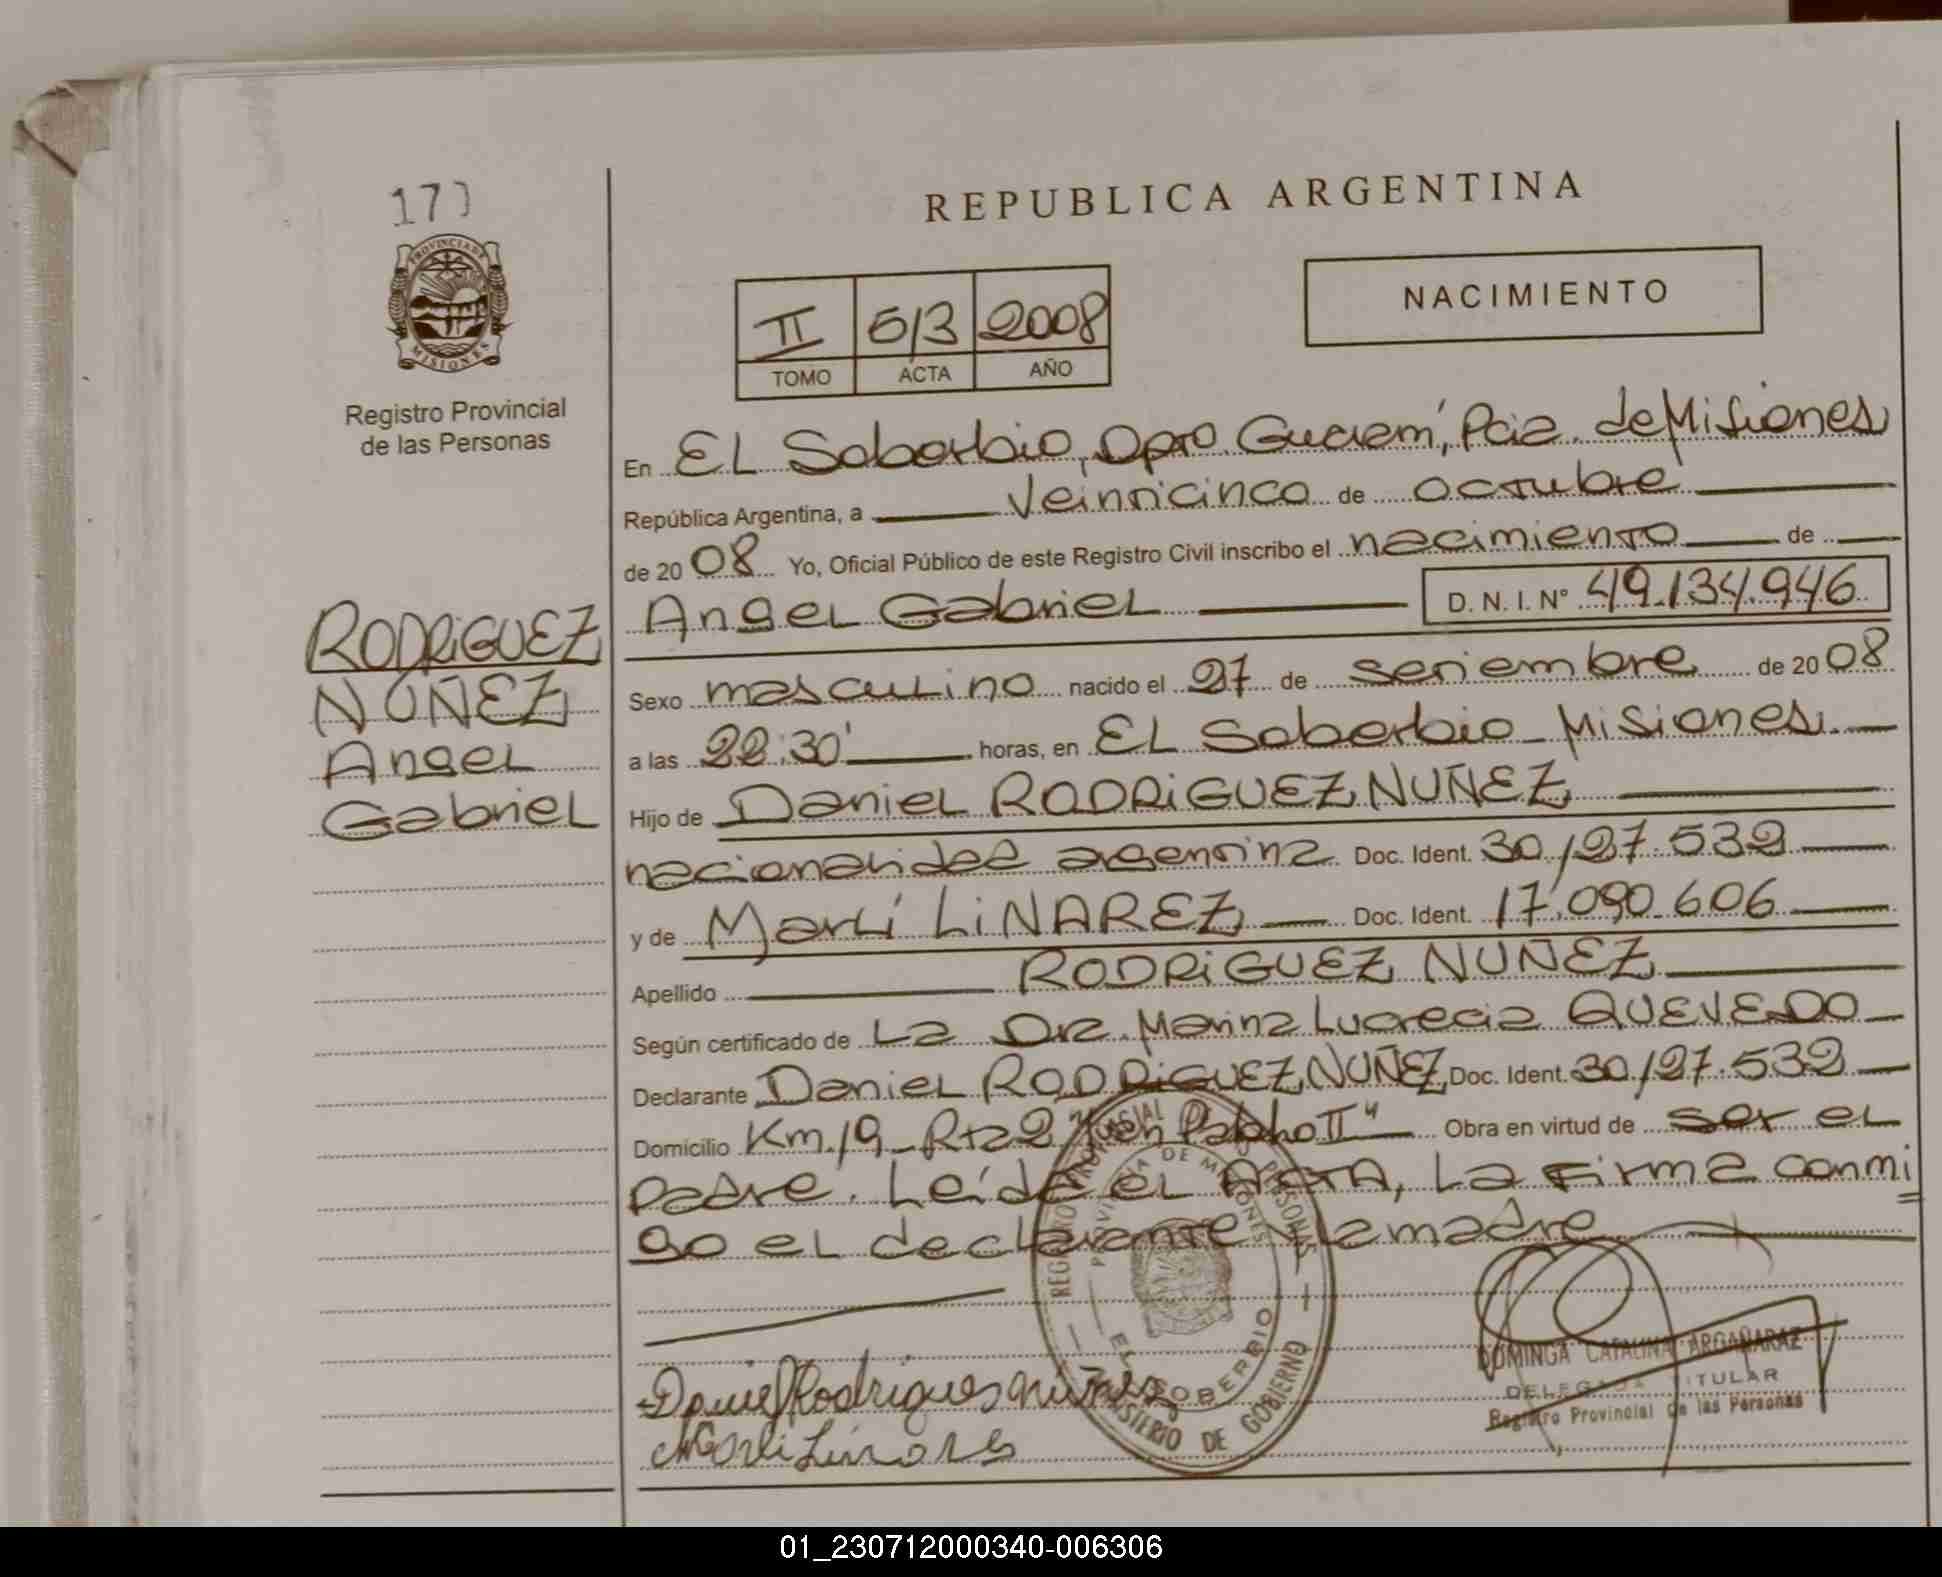 REPUBLICA ARGENTINA
PROVINCIA DE
MISIONES
Registro Provincial
de las Personas
II 513 2008
TOMO ACTA AÑO
NACIMIENTO
En EL Soberbio, Dpto. Guaraní, Pcia. de Misiones
República Argentina, a Veinticinco de octubre
de 2008 Yo, Oficial Público de este Registro Civil inscribo el nacimiento de
Angel Gabriel D. N. I. Nº 49.134.946
RODRiGUEZ
NUÑEZ
Angel
Gabriel
Sexo masculino nacido el 27 de setiembre de 2008
a las 22:30' horas, en EL Soberbio - Misiones.
Hijo de Daniel RODRiGUEZ NUÑEZ
nacionalidad argentina Doc. Ident. 30.127.532
y de Marlí LiNAREZ Doc. Ident. 17.090.606
Apellido RODRiGUEZ NUÑEZ
Según certificado de La Dra. Marina Lucrecia QUEVEDO
Declarante Daniel RODRiGUEZ NUÑEZ Doc. Ident. 30.127.532
Domicilio Km.19 - Rta 2 II" Obra en virtud de ser el
padre. Leída el ACTA, La firma conmi
go el declarante y la madre
REGISTRO PROVINCIAL DE LAS PERSONAS
PROVINCIA DE MISIONES
EL SOBERBIO
MINISTERIO DE GOBIERNO
Daniel Rodrigues nuñez
Marli Linares
DOMINGA CATALINA ARGAÑARAZ
DELEGADA TITULAR
Registro Provincial de las Personas
01_230712000340-006306